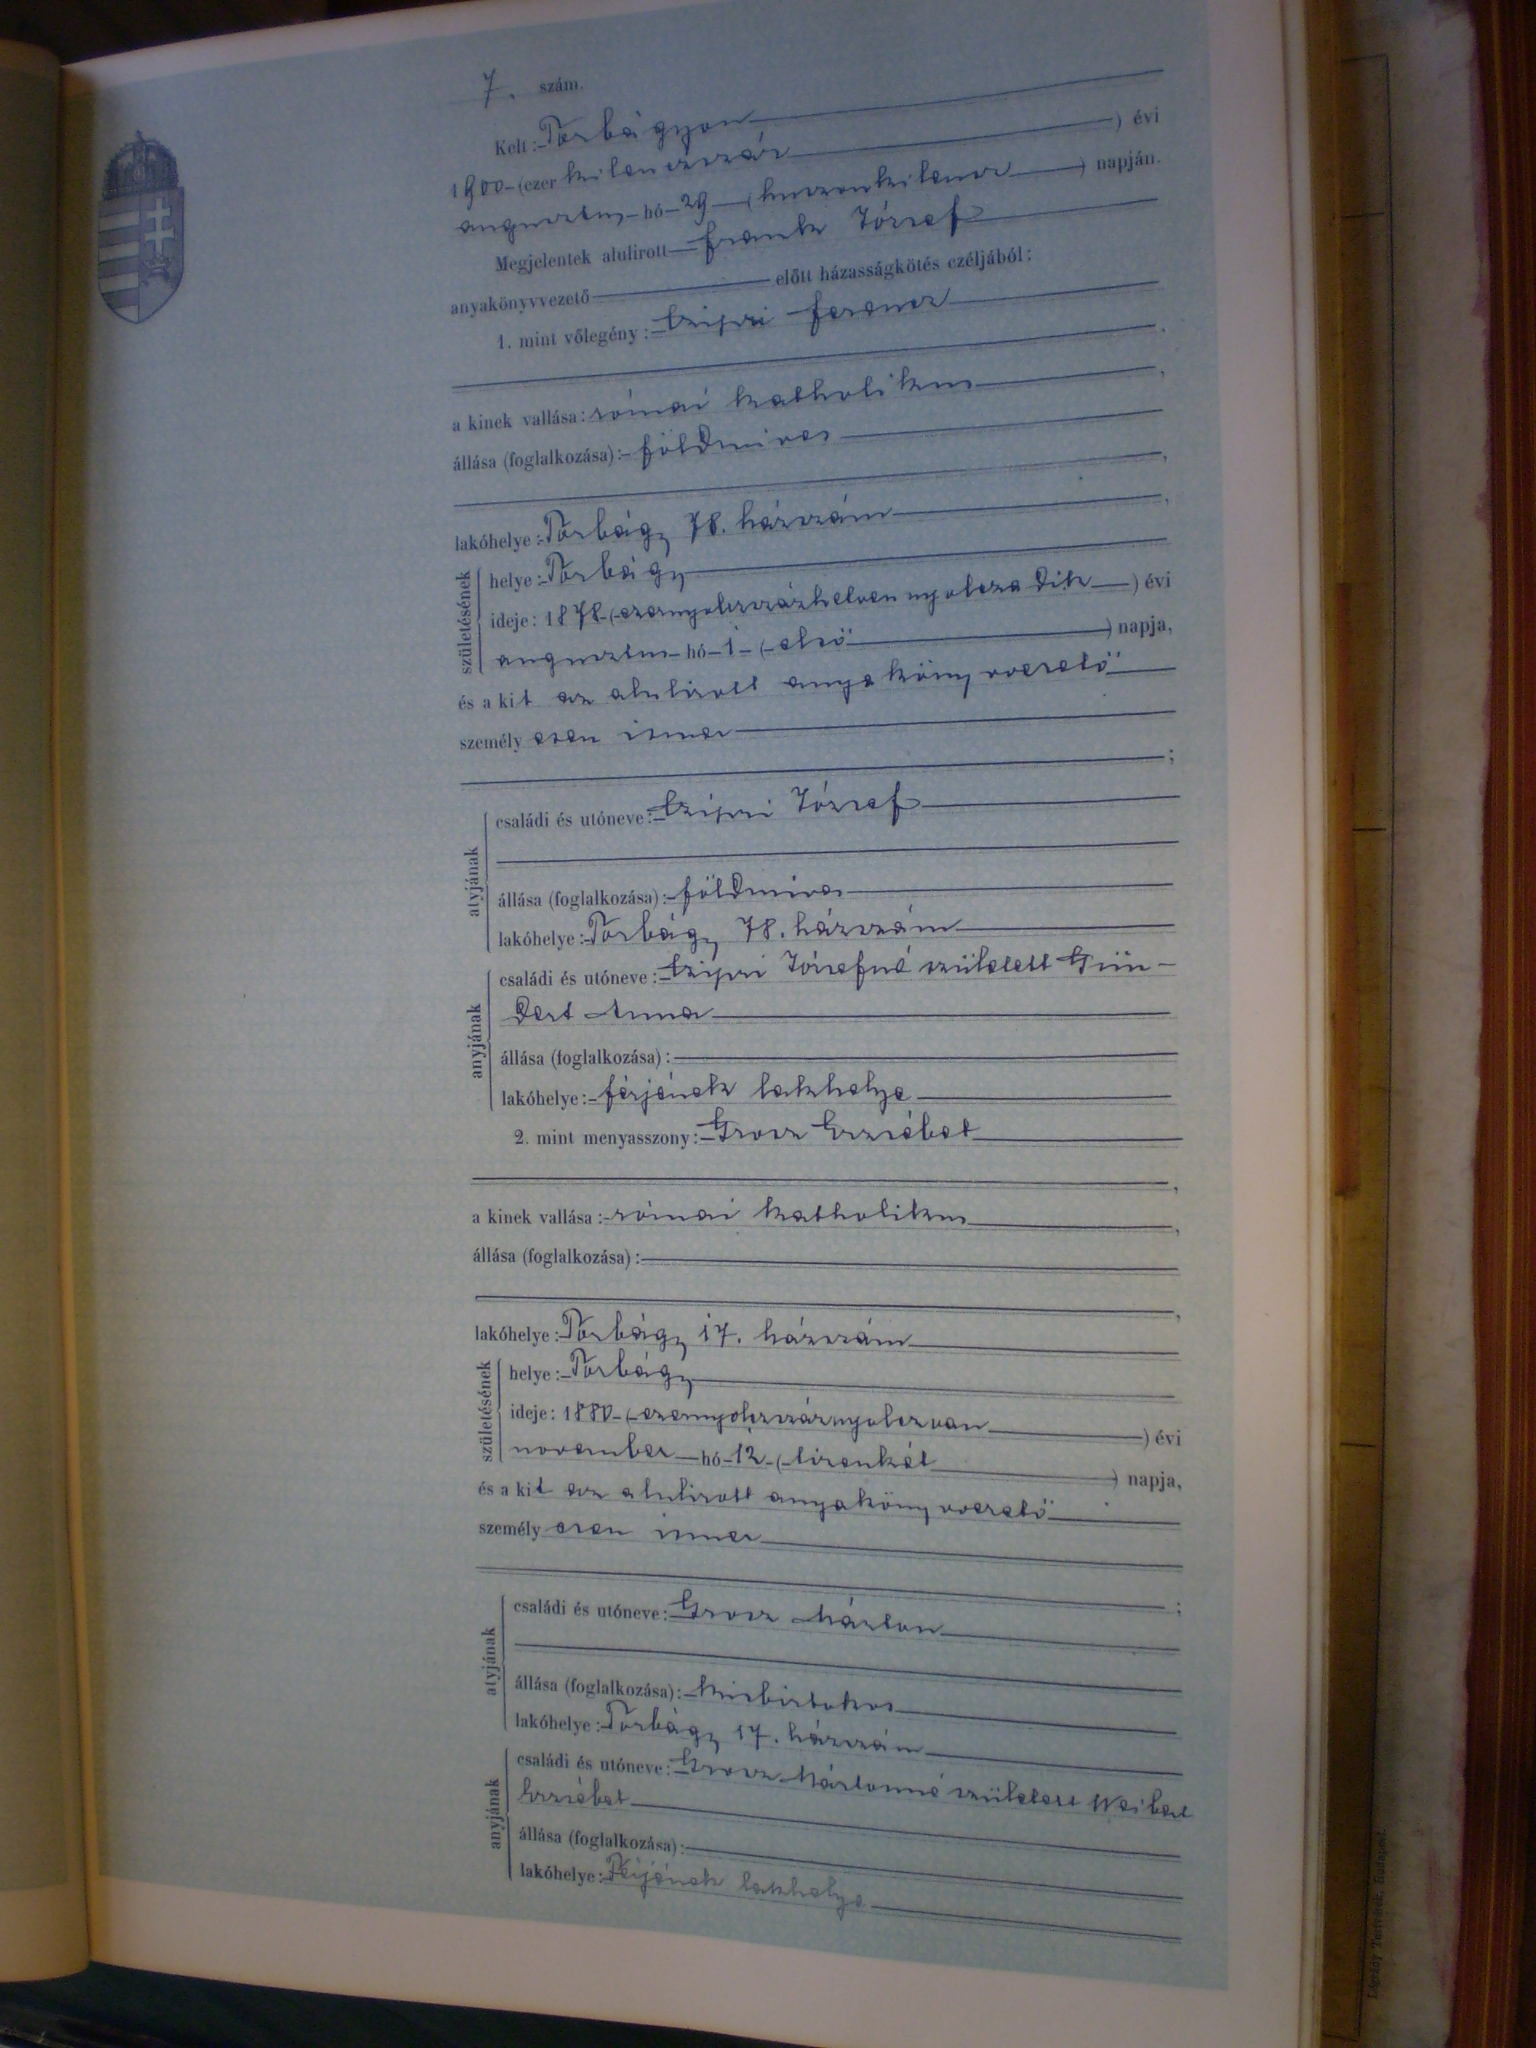 7. szám.
Kelt: Torbágyon
1900 (ezer kilenczszáz ) évi
augusztus hó 29 (huszonkilencz ) napján.
Megjelentek alulirott Frank József
anyakönyvvezető előtt házasságkötés czéljából:
1. mint vőlegény: Czipri Ferencz
a kinek vallása: római katholikus,
állása (foglalkozása): földmives
lakóhelye: Torbágy 78. házszám,
születésének
helye: Torbágy
ideje: 1878 (ezernyolczszázhetvennyolczadik ) évi
augusztus hó 1 (első ) napja,
és a kit az alulirott anyakönyvvezető
személyesen ismer
;
atyjának
családi és utóneve: Czipri József
állása (foglalkozása): földmives
lakóhelye: Torbágy 78. házszám
anyjának
családi és utóneve: Czipri Józsefné született Gün-
dert Anna
állása (foglalkozása):
lakóhelye: férjének lakhelye
2. mint menyasszony: Grosz Erzsébet
,
a kinek vallása: római katholikus,
állása (foglalkozása):
,
lakóhelye: Torbágy 17. házszám
születésének
helye: Torbágy
ideje: 1880 (ezernyolczszáznyolczvan ) évi
november hó 12 (tizenkét ) napja,
és a kit az alulirott anyakönyvvezető
személyesen ismer
;
atyjának
családi és utóneve: Grosz Márton
állása (foglalkozása): kisbirtokos
lakóhelye: Torbágy 17. házszám
anyjának
családi és utóneve: Grosz Mártonné született
Erzsébet
állása (foglalkozása):
lakóhelye: Férjének lakhelye
Légrády Testvérek, Budapest.